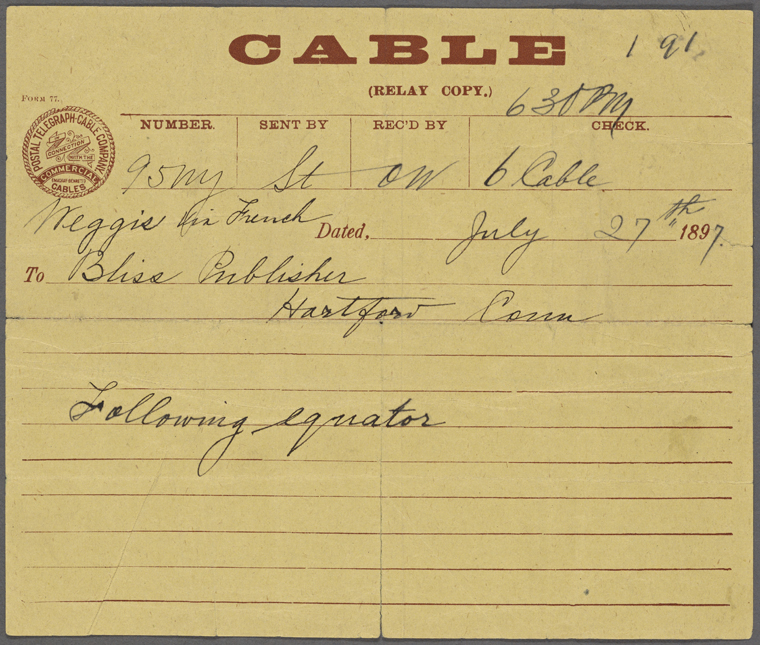 CABLE
1 91
(RELAY COPY.)
630 PM
FORM 77.
POSTAL TELEGRAPH-CABLE COMPANY
CONNECTION WITH THE
COMMERCIAL
CABLES
NUMBER. SENT BY REC'D BY CHECK.
95ny St OW 6 Cable
Weggis via French Dated, July 27th 1897.
To Bliss Publisher
Hartford Conn
Following equator